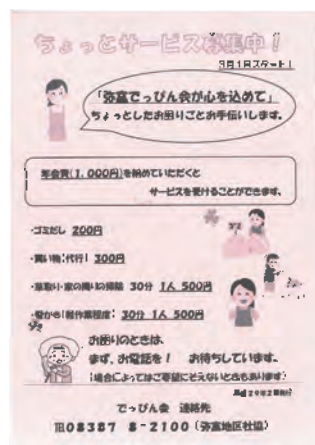 ちょっとサービス募集中!
3月1日スタート!
「弥富でっぴん会が心を込めて」
ちょっとしたお困りごとお手伝いします。
年会費(1,000円)を納めていただくと
サービスを受けることができます。
・ゴミだし 200円
・買い物(代行) 300円
・草取り・家の周りの掃除 30分 1人 500円
・聖から(軽作業程度) 30分 1人 500円
お困りのときは、
まず、お電話を! お待ちしています。
(場合によってはご要望にそえないときもあります)
平成29年2月発行
でっぴん会 連絡先
℡08387 8-2100(弥富地区社協)